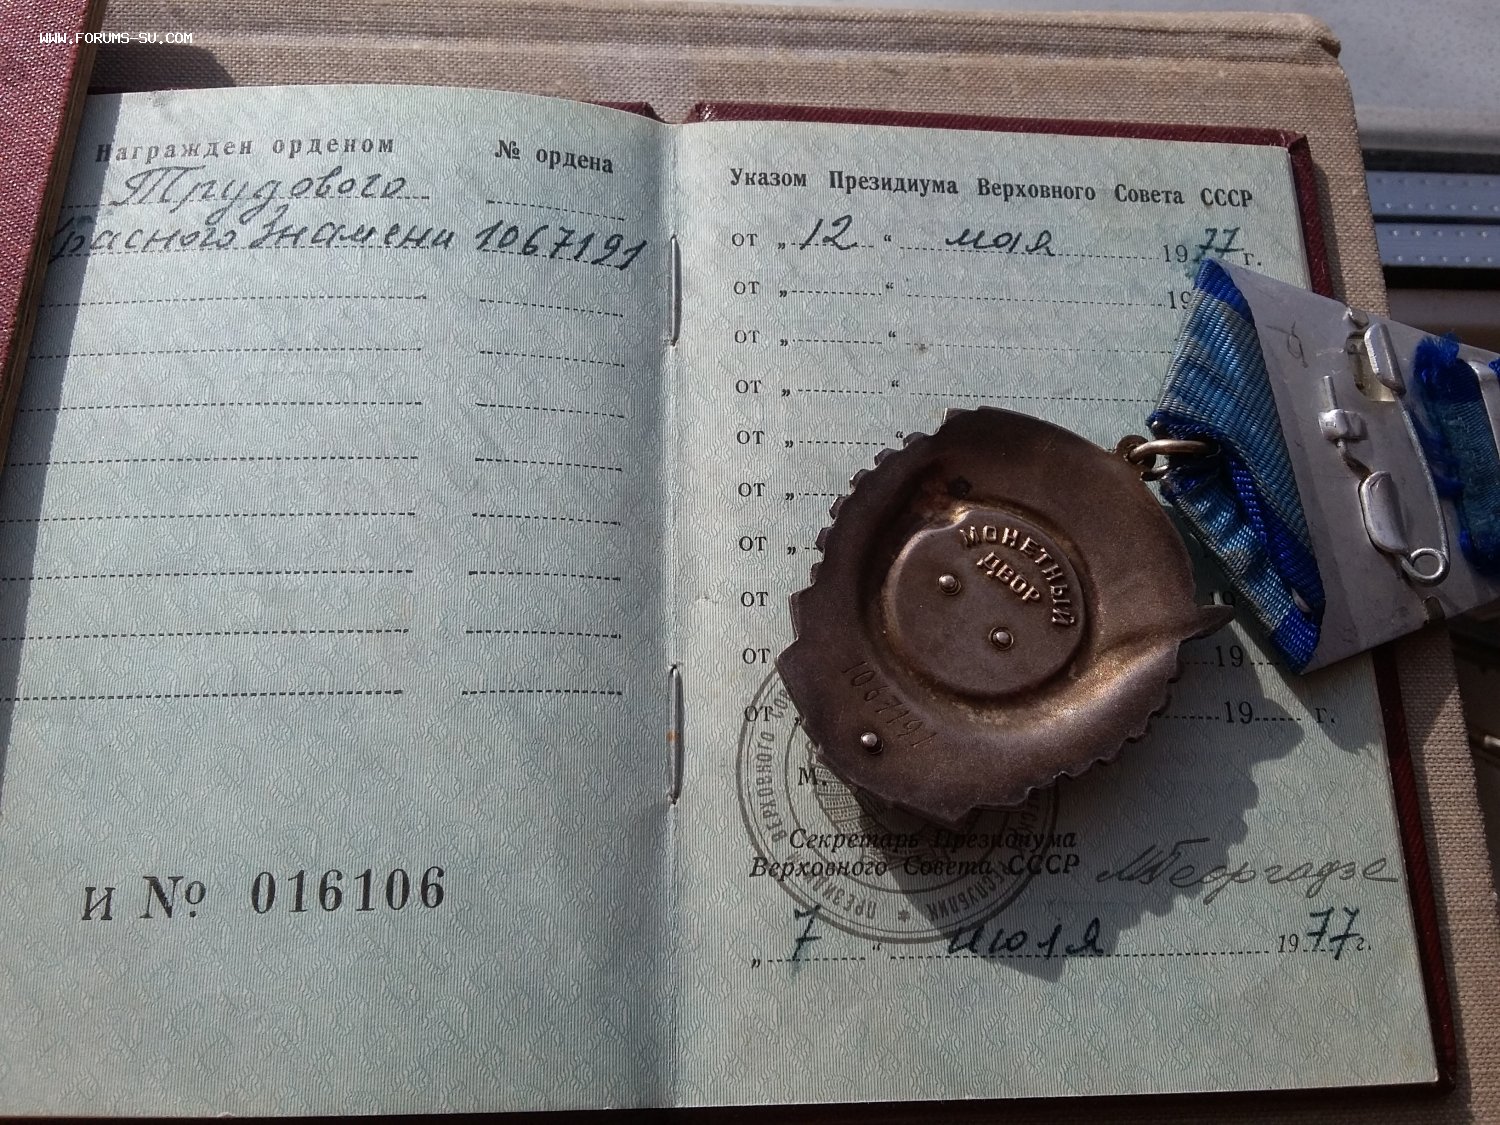 WWW.FORUMS-SU.COM
Награжден орденом
№ ордена
Трудового
Красного Знамени 1067191
И № 016106
Указом Президиума Верховного Совета СССР
от „ 12 “ мая 1977 г.
от „ “ 19
от „ “
от „ “
от „ “
от „
от „
от 19
от 19
от „ 19 г.
М.
Секретарь Президиума
Верховного Совета СССР
МГеоргадзе
„ 7 “ июля 1977 г.
МОНЕТНЫЙ
ДВОР
1067191
ВЕРХОВНОГО